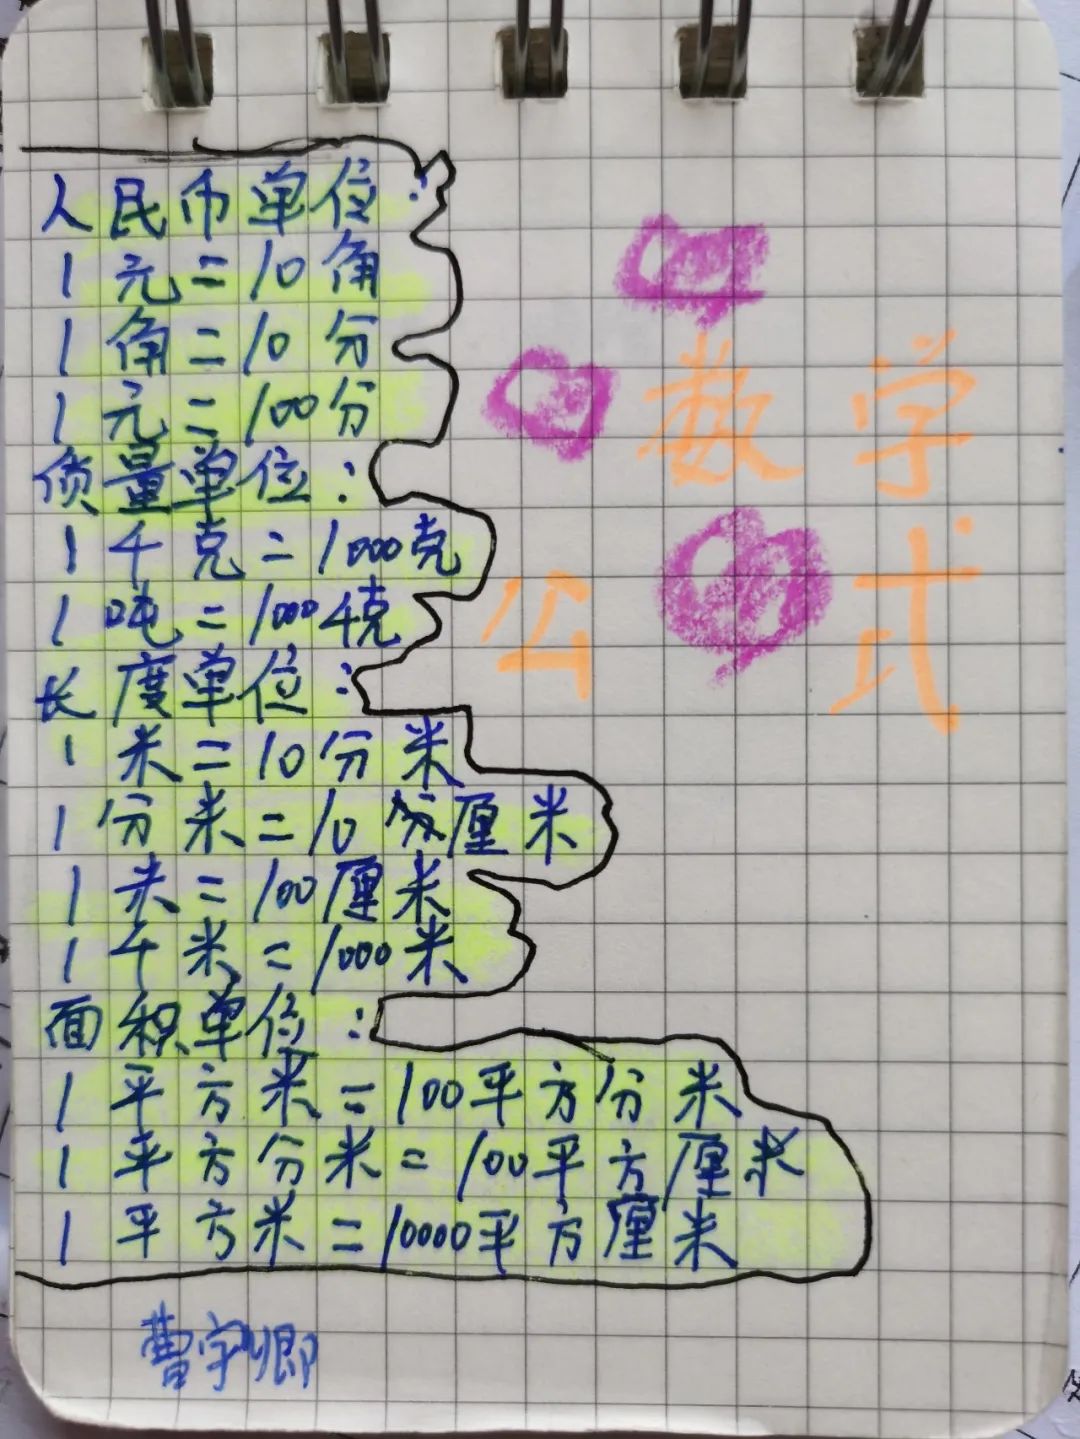 人民币单位:
1元=10角
1角=10分
1元=100分
质量单位:
1千克=1000克
1吨=1000千克
长度单位:
1米=10分米
1分米=10厘米
1米=100厘米
1千米=1000米
面积单位:
1平方米=100平方分米
1平方分米=100平方厘米
1平方米=10000平方厘米
数学
公式